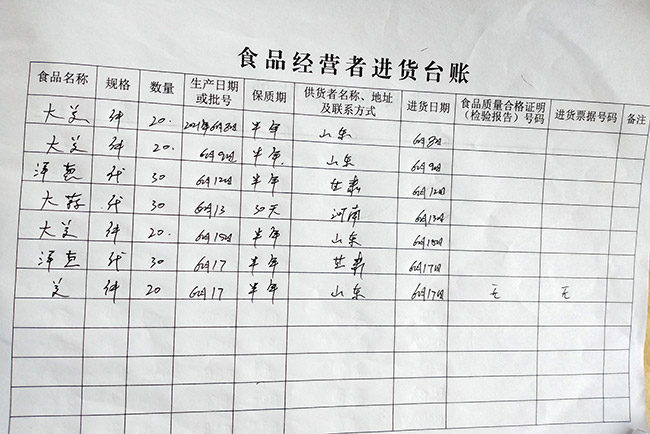 食品经营者进货台账
食品名称 规格 数量 生产日期或批号 保质期 供货者名称、地址及联系方式 进货日期 食品质量合格证明（检验报告）号码 进货票据号码 备注
大姜 件 20. 2021年6月8日 半年 山东 6月8日
大姜 件 20. 6月9日 半年. 山东 6月9日
洋葱 袋 30 6月12日 半年 甘肃 6月12日
大蒜 袋 30 6月13 30天 河南 6月13日
大姜 件 20. 6月15日 半年 山东 6月15日
洋葱 袋 30 6月17 半年 甘肃 6月17日
姜 件 20 6月17 半年 山东 6月17日 无 无